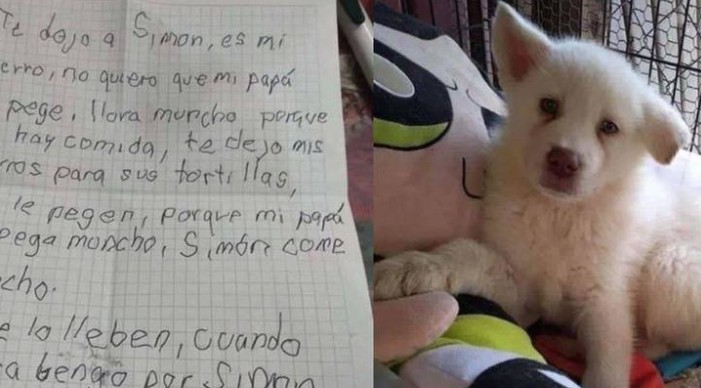 Te dejo a Simon, es mi
erro, no quiero que mi papá
pege, llora muncho porque
hay comida, te dejo mis
ros para sus tortillas,
le pegen, porque mi papá
pega moncho, Simón come
cho.
e lo lleben, cuando
a bengo por Simon